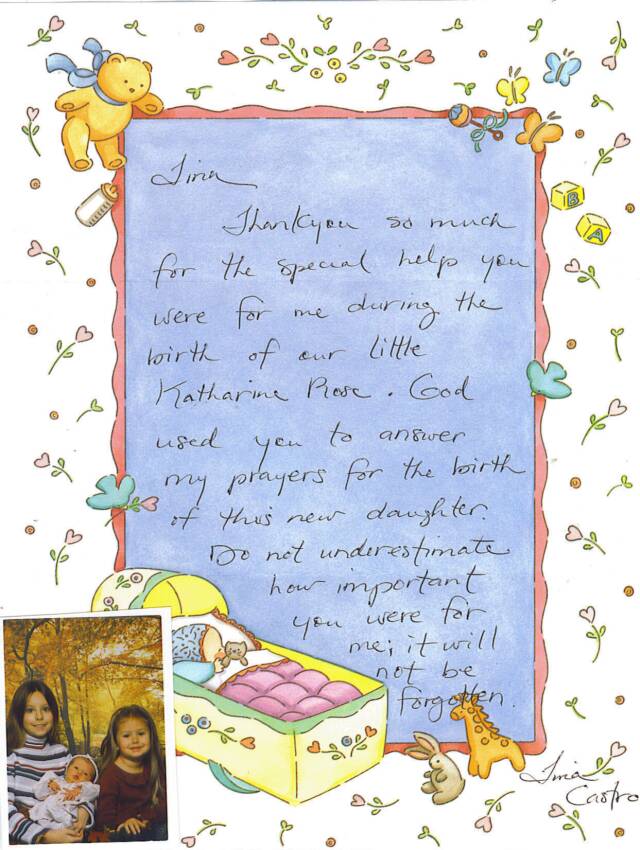 Tina
Thankyou so much
for the special help you
were for me during the
birth of our little
Katharine Rose. God
used you to answer
my prayers for the birth
of this new daughter.
Do not underestimate
how important
you were for
me; it will
not be
forgotten.
Tina
Castro
B
A